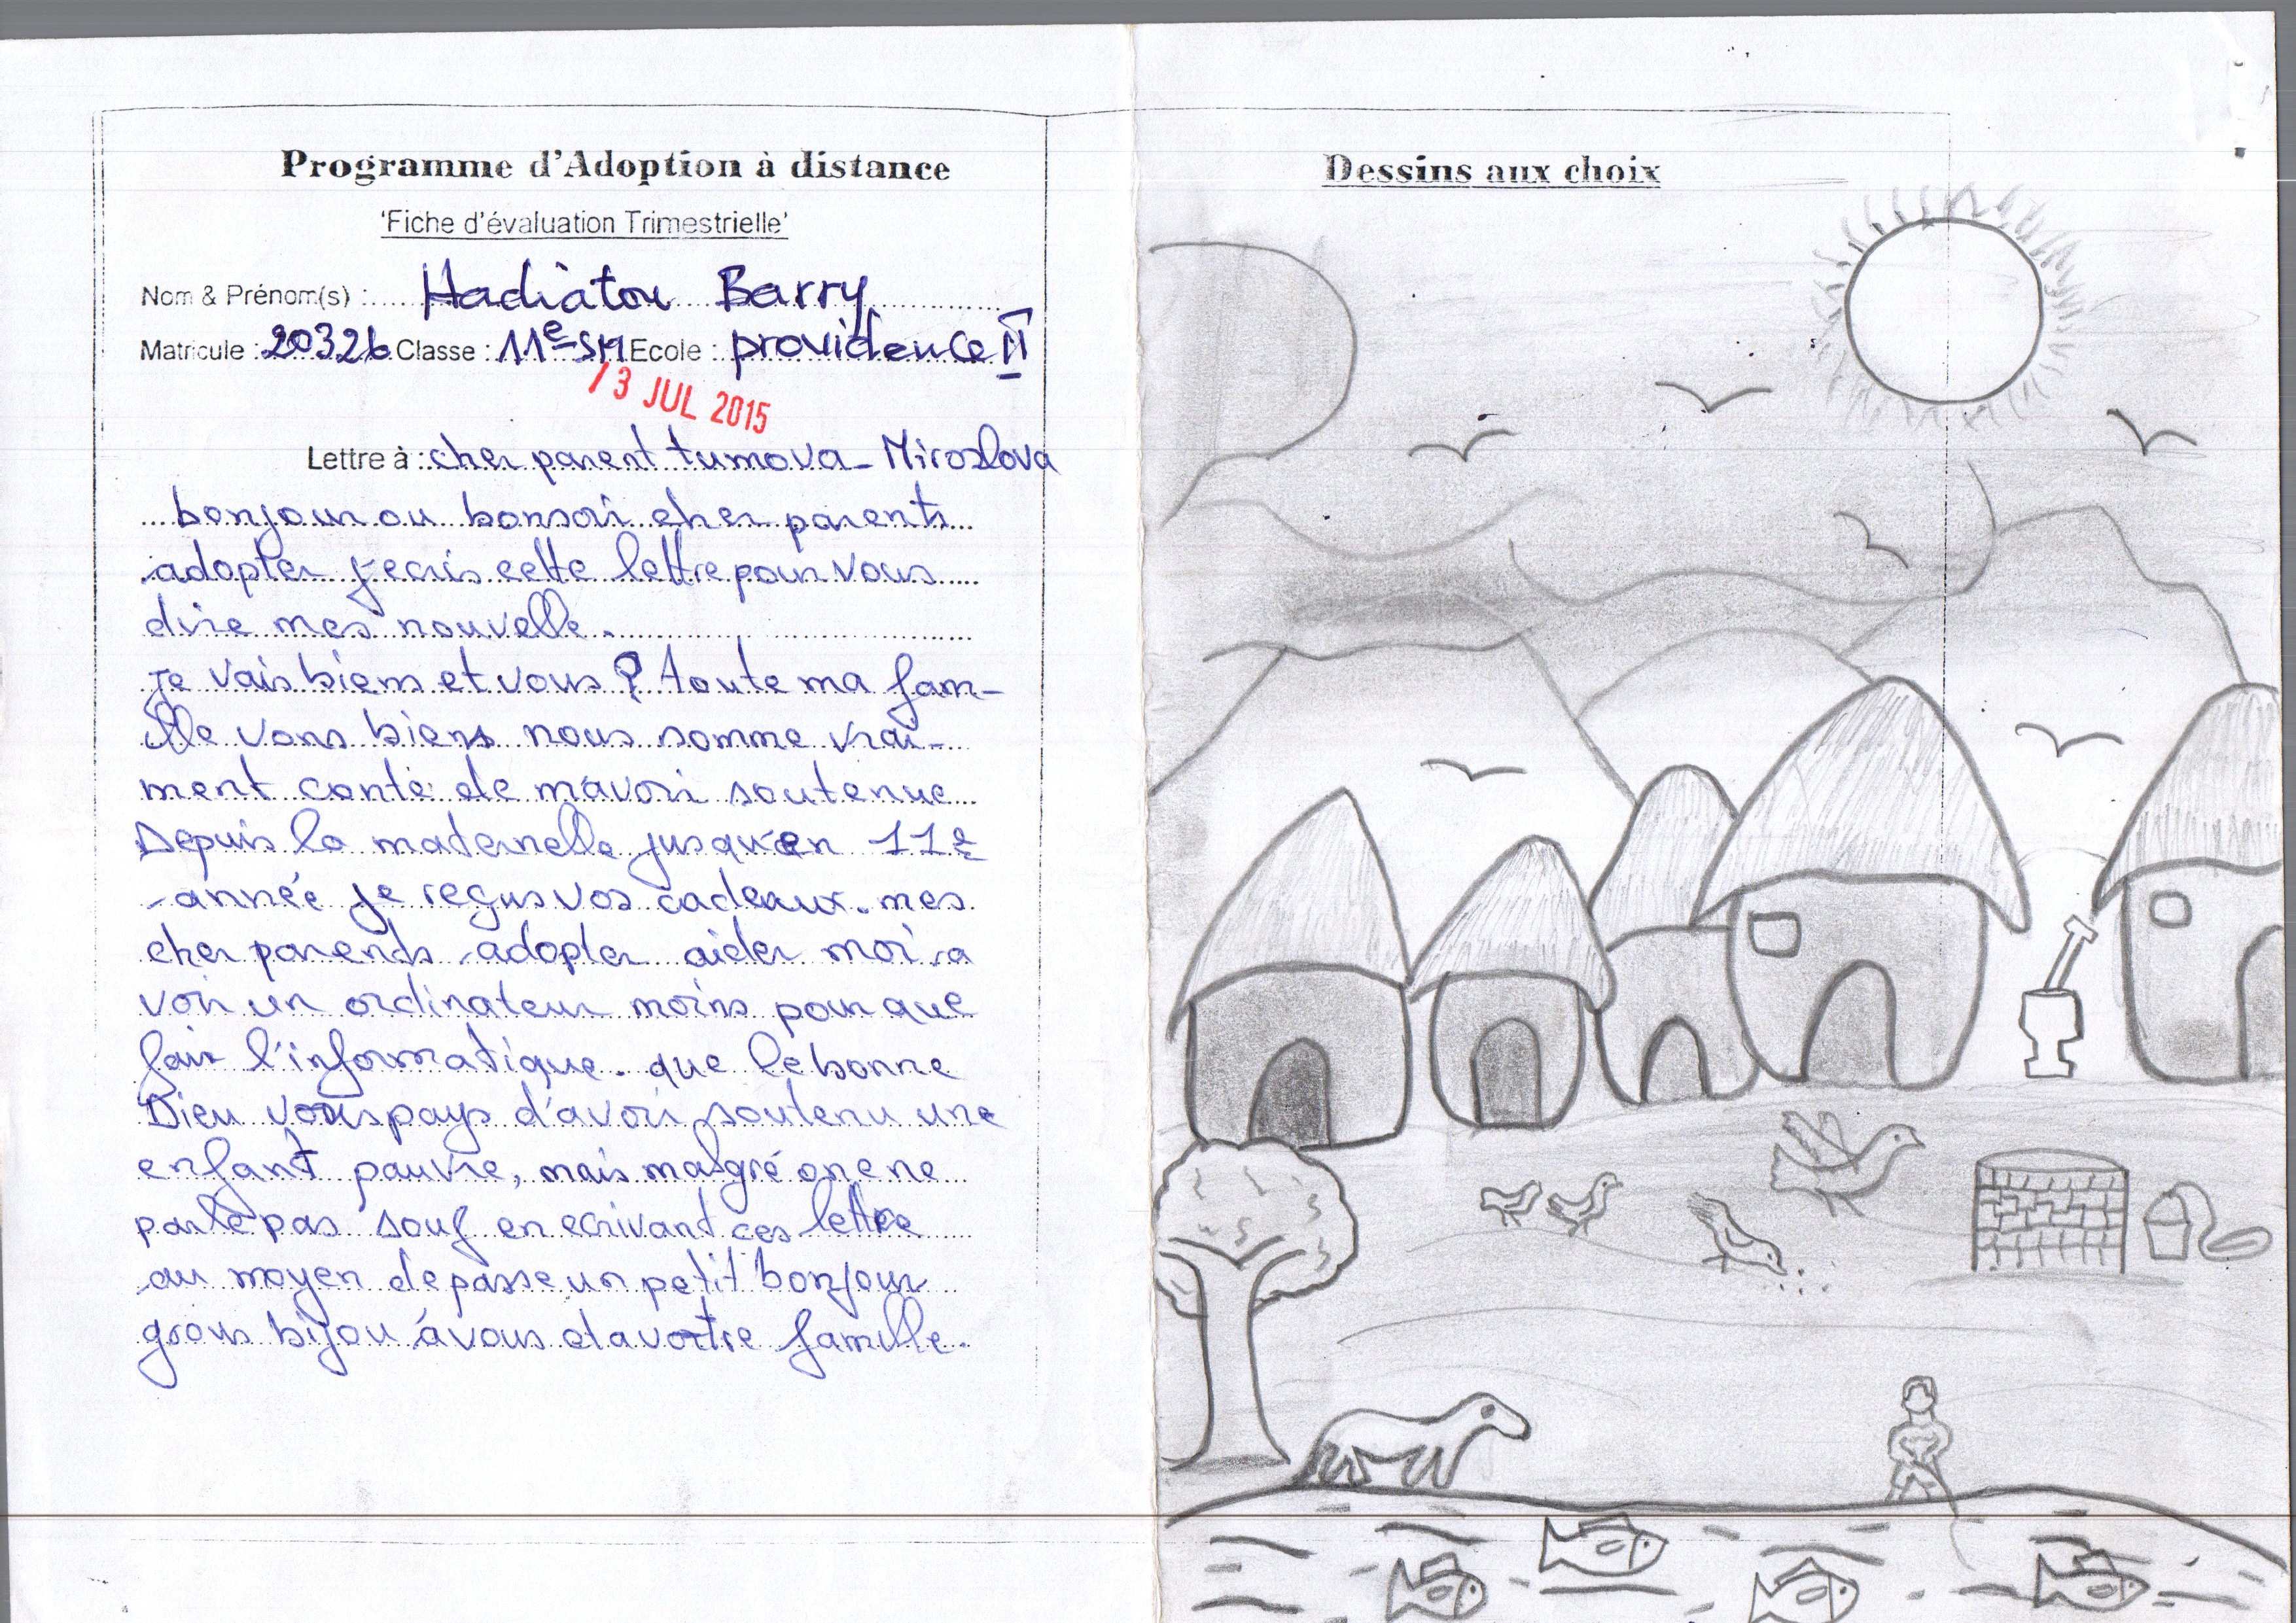 Programme d'Adoption à distance
'Fiche d'évaluation Trimestrielle'
Nom & Prénom(s) : Hadiatou Barry
Matricule : 20326 Classe : 11e SM Ecole : providence II
13 JUL 2015
Lettre à : cher parent tumova - Miroslova
bonjour ou bonsoir cher parents
adopter j'ecris cette lettre pour vous
dire mes nouvelle.
je vais biens et vous ? toute ma fam-
ille vons biens nous somme vrai-
ment conte de m'avoir soutenue
Depuis la maternelle jusqu'en 11e
année je reçus vos cadeaux. mes
cher parends adopter aider moi a
voir un ordinateur moins pour que
fair l'informatique. que le bonne
Dieu vous pays d'avoir soutenu une
enfant pauvre, mais malgré on e ne
parle pas souf en ecrivant ces lettre
au moyen de passe un petit bonjour
grous bijou á vous et a votre famille.
Dessins aux choix